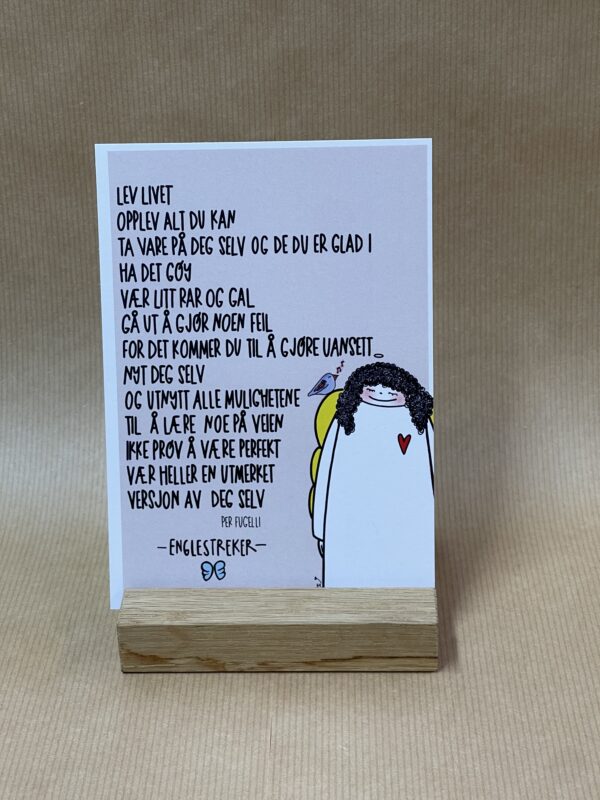 LEV LIVET
OPPLEV ALT DU KAN
TA VARE PÅ DEG SELV OG DE DU ER GLAD I
HA DET GØY
VÆR LITT RAR OG GAL
GÅ UT Å GJØR NOEN FEIL
FOR DET KOMMER DU TIL Å GJØRE UANSETT
NYT DEG SELV
OG UTNYTT ALLE MULIGHETENE
TIL Å LÆRE NOE PÅ VEIEN
IKKE PRØV Å VÆRE PERFEKT
VÆR HELLER EN UTMERKET
VERSJON AV DEG SELV
PER FUGELLI
-ENGLESTREKER-